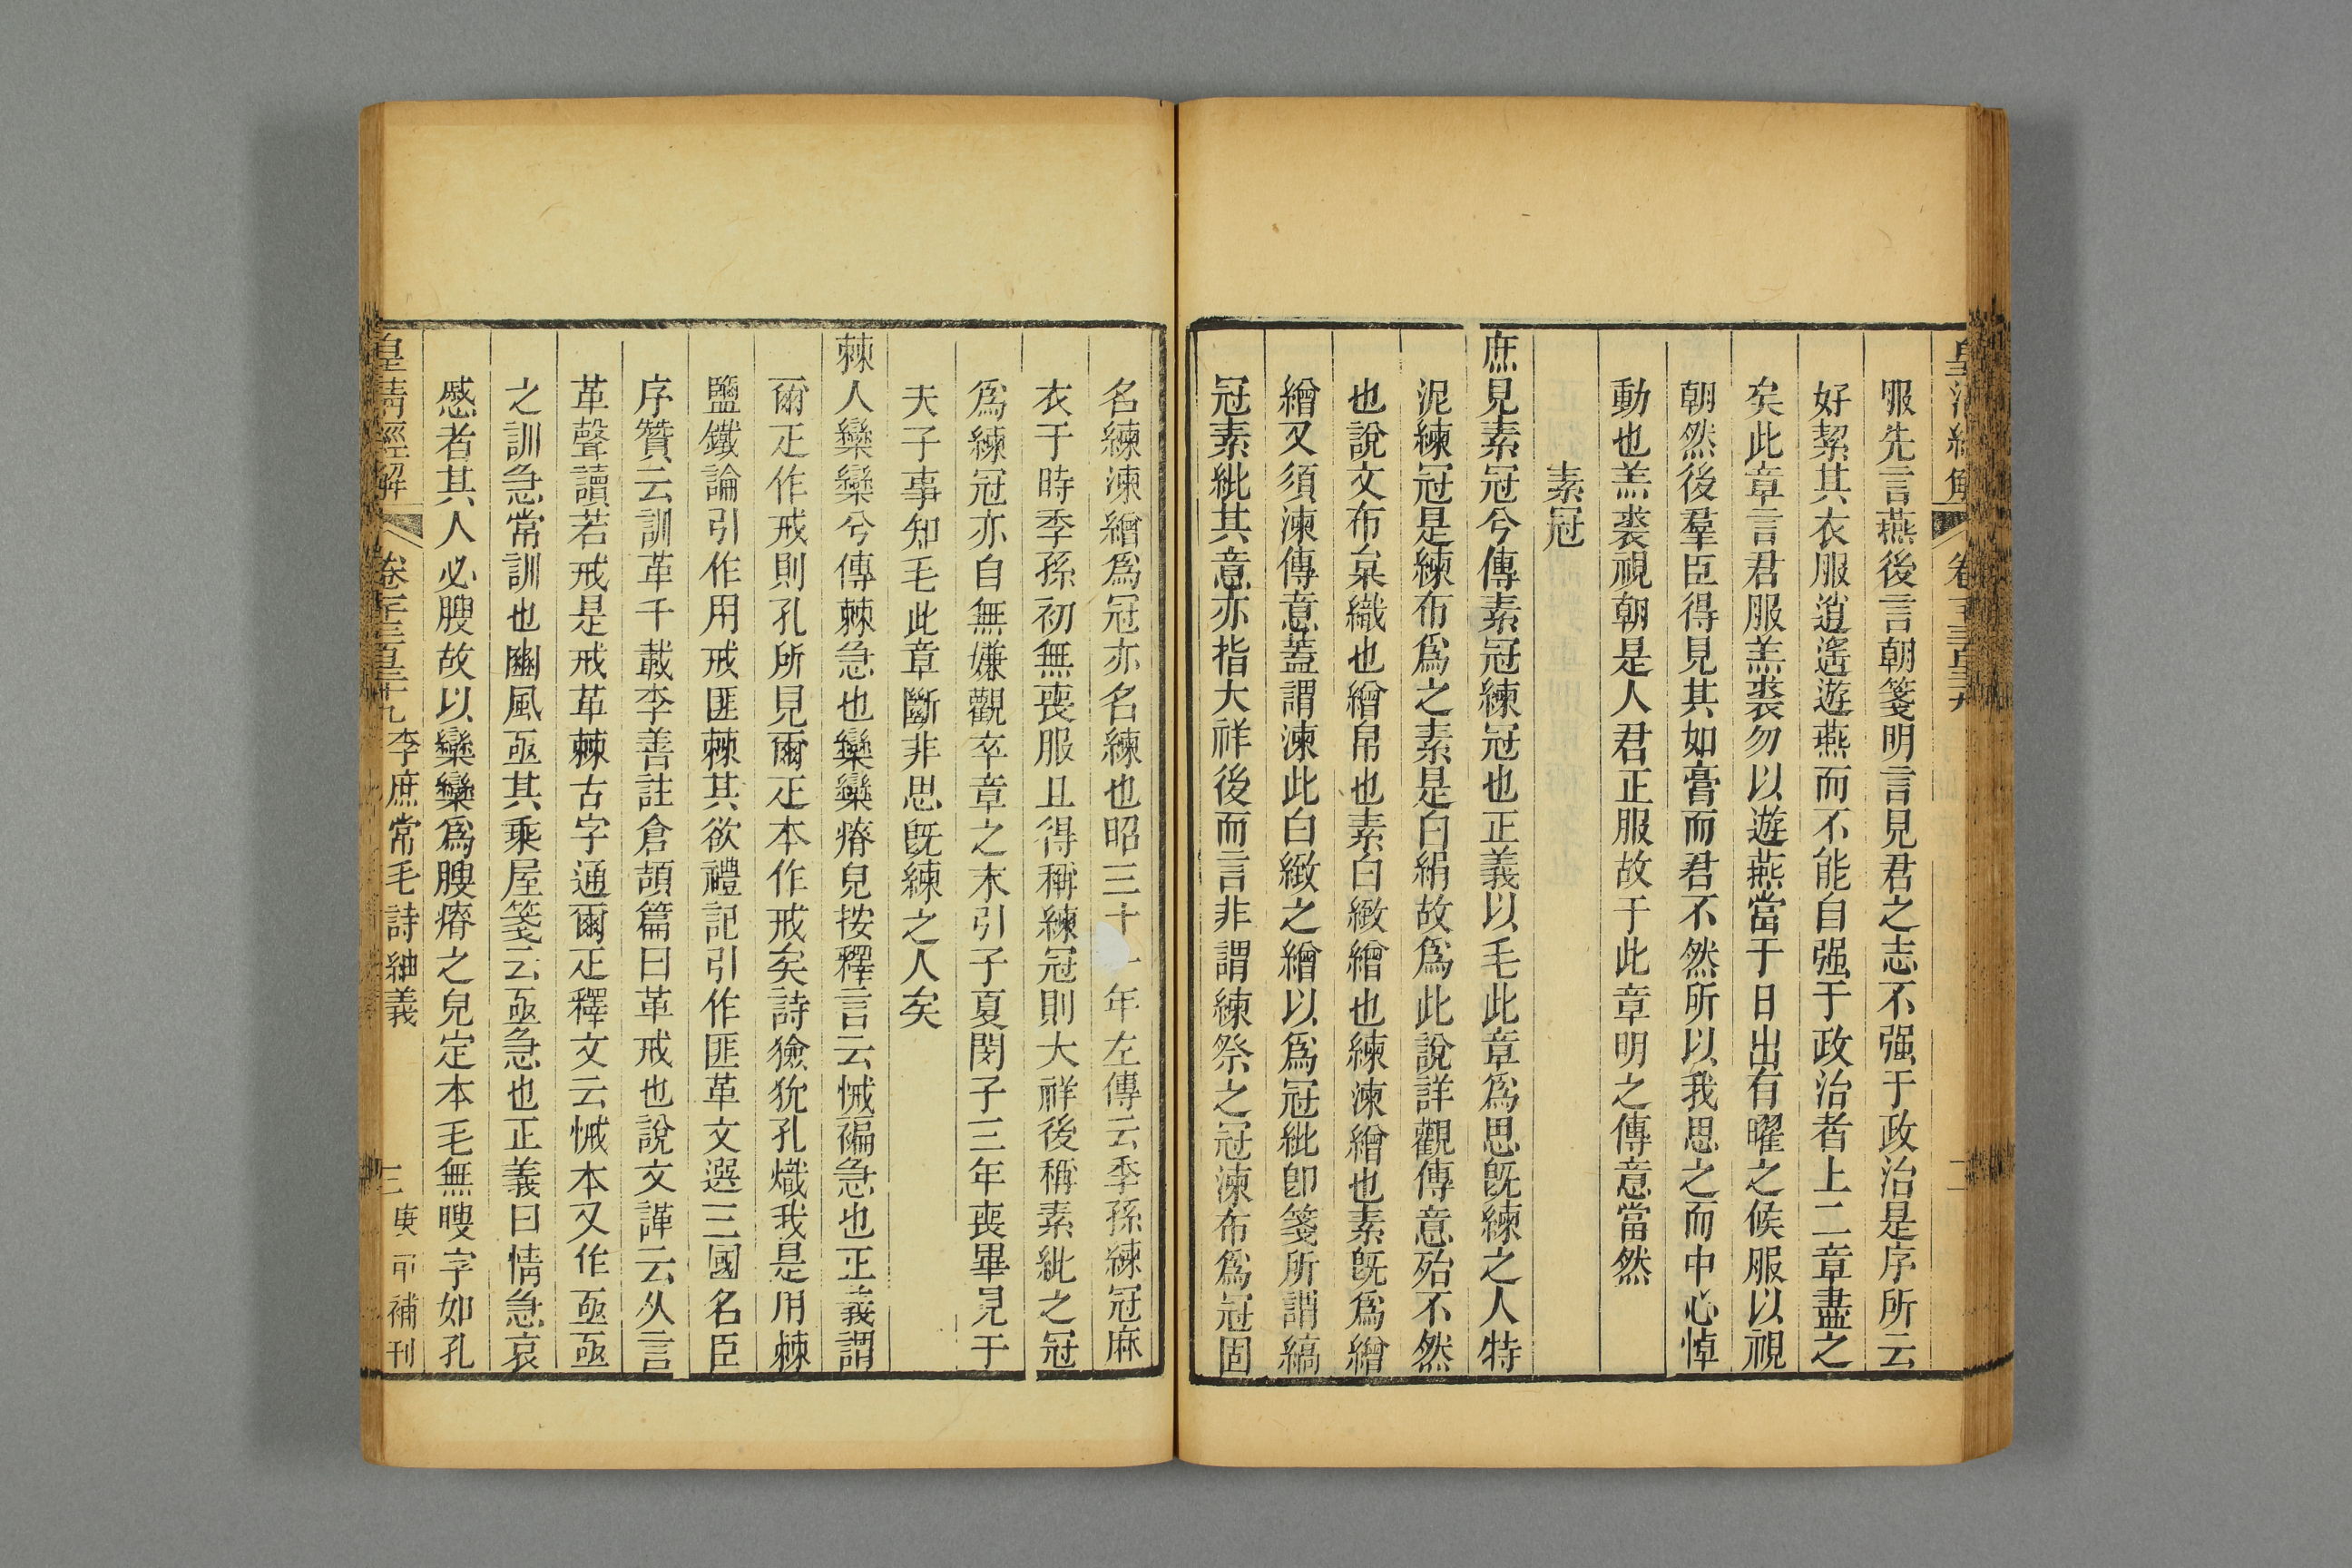 服先言燕後言朝箋明言見君之志不强于政治是序所云
好絜其衣服逍遙遊燕而不能自强于政治者上二章盡之
矣此章言君服羔裘勿以遊燕當于日出有曜之候服以視
朝然後羣臣得見其如膏而君不然所以我思之而中心悼
動也羔裘視朝是人君正服故于此章明之傳意當然
素冠
庶見素冠兮傳素冠練冠也正義以毛此章爲思旣練之人特
泥練冠是練布爲之素是白絹故爲此說詳觀傳意殆不然
也說文布枲織也繒帛也素白緻繒也練湅繒也素旣爲繒
繒又須湅傳意蓋謂湅此白緻之繒以爲冠紕卽箋所謂縞
冠素紕其意亦指大祥後而言非謂練祭之冠湅布爲冠固
名練湅繒爲冠亦名練也昭三十一年左傳云季孫練冠麻
衣于時季孫初無喪服且得稱練冠則大祥後稱素紕之冠
爲練冠亦自無嫌觀卒章之末引子夏閔子三年喪畢見于
夫子事知毛此章斷非思旣練之人矣
棘人欒欒兮傳棘急也欒欒瘠皃按釋言云悈褊急也正義謂
爾疋作戒則孔所見爾疋本作戒矣詩獫狁孔熾我是用棘
鹽鐵論引作用戒匪棘其欲禮記引作匪革文選三國名臣
序贊云訓革千載李善註倉頡篇曰革戒也說文諽云从言
革聲讀若戒是戒革棘古字通爾疋釋文云悈本又作亟亟
之訓急常訓也豳風亟其乘屋箋云亟急也正義曰情急哀
慼者其人必䐹故以欒欒爲䐹瘠之皃定本毛無䐹字如孔
皇清經解 卷 李庶常毛詩紬義 三 庚申補刊